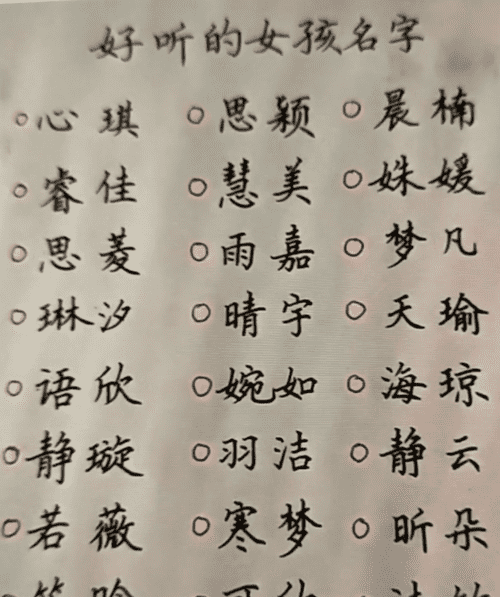 好听的女孩名字
心琪 思颖 晨楠
睿佳 慧美 姝媛
思菱 雨嘉 梦凡
琳汐 晴宇 天瑜
语欣 婉如 海琼
静璇 羽洁 静云
若薇 寒梦 昕朵